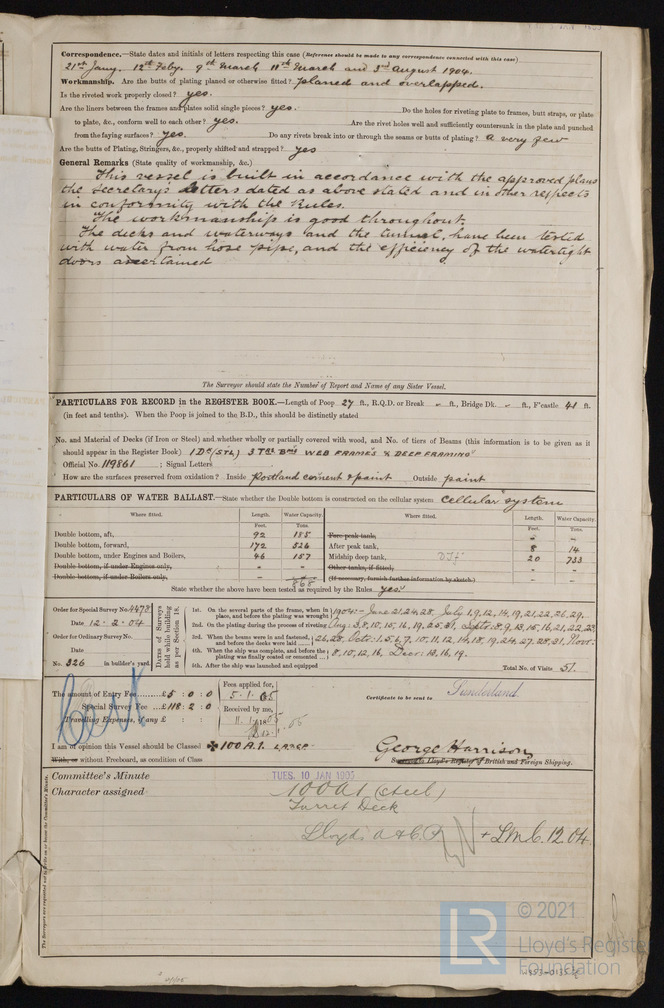 Correspondence.—State dates and initials of letters respecting this case (Reference should be made to any correspondence connected with this case)
21st Jany. 12th Feby. 9th March 11th March and 3rd August 1904.
Workmanship. Are the butts of plating planed or otherwise fitted? planed and overlapped.
Is the riveted work properly closed? yes.
Are the liners between the frames and plates solid single pieces? yes. Do the holes for riveting plate to frames, butt straps, or plate
to plate, &c., conform well to each other? yes. Are the rivet holes well and sufficiently countersunk in the plate and punched
from the faying surfaces? yes. Do any rivets break into or through the seams or butts of plating? a very few
Are the butts of Plating, Stringers, &c., properly shifted and strapped? yes
General Remarks (State quality of workmanship, &c.)
This vessel is built in accordance with the approved plans
the Secretary's letters dated as above stated and in other respects
in conformity with the Rules.
The workmanship is good throughout.
The decks and waterways and the tunnel, have been tested
with water from hose pipe, and the efficiency of the watertight
doors ascertained
The Surveyor should state the Number of Report and Name of any Sister Vessel.
PARTICULARS FOR RECORD in the REGISTER BOOK.—Length of Poop 27 ft., R.Q.D. or Break - ft., Bridge Dk. - ft., F'castle 41 ft.
(in feet and tenths). When the Poop is joined to the B.D., this should be distinctly stated
No. and Material of Decks (if Iron or Steel) and whether wholly or partially covered with wood, and No. of tiers of Beams (this information is to be given as it
should appear in the Register Book) 1 Dk (STL) 3 Trs Bms WEB FRAMES & DEEP FRAMING
Official No. 119861 ; Signal Letters
How are the surfaces preserved from oxidation? Inside Portland cement & paint Outside paint
PARTICULARS OF WATER BALLAST.—State whether the Double bottom is constructed on the cellular system Cellular system
Where fitted. Length. Water Capacity. Where fitted. Length. Water Capacity.
Feet. Tons. Feet. Tons.
Double bottom, aft, 92 185 Fore peak tank, - -
Double bottom, forward, 172 526 After peak tank, 8 14
Double bottom, under Engines and Boilers, 46 157 Midship deep tank, 20 733
Double bottom, if under Engines only, - - Other tanks, if fitted, - -
Double bottom, if under Boilers only, - 868 (If necessary, furnish further information by sketch.) - -
State whether the above have been tested as required by the Rules yes
Order for Special Survey No. 4478
Date 12.2.04
Order for Ordinary Survey No.
Date
No. 326 in builder's yard.
Dates of Surveys held while building as per Section 18.
1st. On the several parts of the frame, when in place, and before the plating was wrought 1904:- June 21,24,28, July 1,9,12,14,19,21,22,26,29.
2nd. On the plating during the process of riveting Aug: 3,8,10,15,16,19,25,31, Sept: 8,9,13,15,16,21,22,23
3rd. When the beams were in and fastened, and before the decks were laid 26,28, Octr: 1,5,6,7,10,11,12,14,18,19,24,27,28,31, Novr:
4th. When the ship was complete, and before the plating was finally coated or cemented 8,10,12,16, Decr: 13,16,19.
5th. After the ship was launched and equipped Total No. of Visits 51.
The amount of Entry Fee £5 : 0 : 0
Special Survey Fee £118 : 2 : 0
Travelling Expenses, if any £ :
Cert
Fees applied for,
5.1.05
Received by me,
Certificate to be sent to Sunderland
I am of opinion this Vessel should be Classed +100A1. L.A.&C.P.
With, or without Freeboard, as condition of Class
George Harrison
Surveyor to Lloyd's Register of British and Foreign Shipping.
Committee's Minute TUES. 10 JAN 1905
Character assigned 100A1 (steel)
Turret Deck
Lloyds A & C.P. + LMC. 12.04.
The Surveyors are requested not to write on or below the Committee's Minute.
LR
© 2021
Lloyd's Register
Foundation